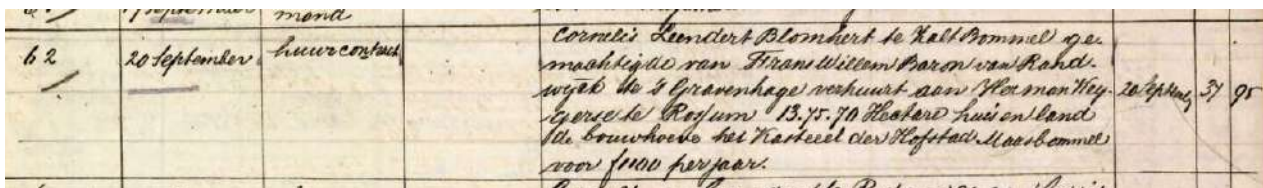 17 September
mond
62 20 September huurcontract Cornelis Leendert Blomhert te Zalt Bommel ge-
machtigde van Frans Willem Baron van Rand-
wijck te 's Gravenhage verhuurt aan Herman Wey- 20 September 37 95
gerse te Rossum 13.75.70 Hectare huis en land
de bouwhoeve het Kasteel der Hofstad Maasbommel
voor f1100 per jaar.